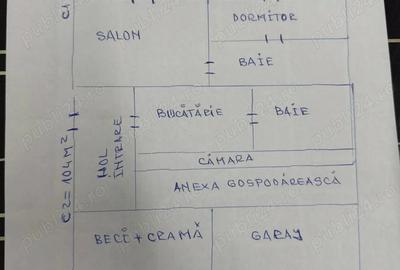 C1
SALON
DORMITOR
BAIE
C2 = 104 M²
HOL
INTRARE
BUCĂTĂRIE
BAIE
CĂMARA
ANEXA GOSPODĂREASCĂ
BECI + CRAMĂ
GARAJ